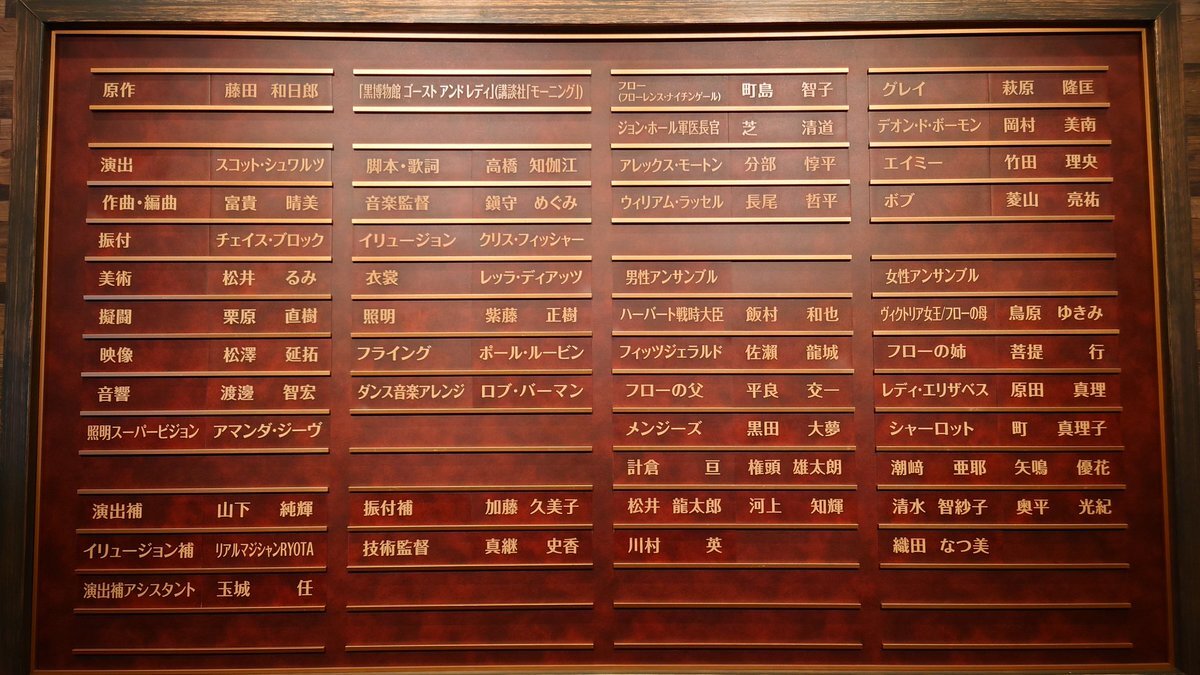 原作 藤田 和日郎
演出 スコット・シュワルツ
作曲・編曲 富貴 晴美
振付 チェイス・ブロック
美術 松井 るみ
擬闘 栗原 直樹
映像 松澤 延拓
音響 渡邊 智宏
照明スーパービジョン アマンダ・ジーヴ
演出補 山下 純輝
イリュージョン補 リアルマジシャンRYOTA
演出補アシスタント 玉城 任
「黒博物館 ゴースト アンド レディ」(講談社「モーニング」)
脚本・歌詞 高橋 知伽江
音楽監督 鎭守 めぐみ
イリュージョン クリス・フィッシャー
衣裳 レッラ・ディアッツ
照明 紫藤 正樹
フライング ポール・ルービン
ダンス音楽アレンジ ロブ・バーマン
振付補 加藤 久美子
技術監督 真継 史香
フロー(フローレンス・ナイチンゲール) 町島 智子
ジョン・ホール軍医長官 芝 清道
アレックス・モートン 分部 惇平
ウィリアム・ラッセル 長尾 哲平
男性アンサンブル
ハーバート戦時大臣 飯村 和也
フィッツジェラルド 佐瀬 龍城
フローの父 平良 交一
メンジーズ 黒田 大夢
計倉 亘 権頭 雄太朗
松井 龍太郎 河上 知輝
川村 英
グレイ 萩原 隆匡
デオン・ド・ボーモン 岡村 美南
エイミー 竹田 理央
ボブ 菱山 亮祐
女性アンサンブル
ヴィクトリア女王/フローの母 鳥原 ゆきみ
フローの姉 菩提 行
レディ・エリザベス 原田 真理
シャーロット 町 真理子
潮﨑 亜耶 矢鳴 優花
清水 智紗子 奥平 光紀
織田 なつ美